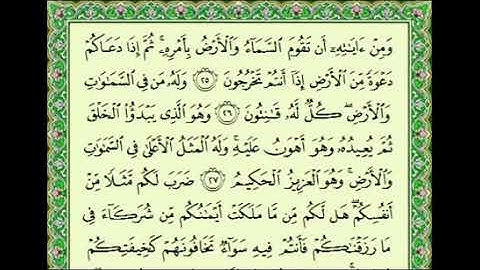 وَمِنْ ءَايَـٰتِهِۦٓ أَن تَقُومَ ٱلسَّمَآءُ وَٱلْأَرْضُ بِأَمْرِهِۦ ۚ ثُمَّ إِذَا دَعَاكُمْ
دَعْوَةً مِّنَ ٱلْأَرْضِ إِذَآ أَنتُمْ تَخْرُجُونَ ٢٥ وَلَهُۥ مَن فِى ٱلسَّمَـٰوَٰتِ
وَٱلْأَرْضِ ۖ كُلٌّ لَّهُۥ قَـٰنِتُونَ ٢٦ وَهُوَ ٱلَّذِى يَبْدَؤُا۟ ٱلْخَلْقَ
ثُمَّ يُعِيدُهُۥ وَهُوَ أَهْوَنُ عَلَيْهِ ۚ وَلَهُ ٱلْمَثَلُ ٱلْأَعْلَىٰ فِى ٱلسَّمَـٰوَٰتِ
وَٱلْأَرْضِ ۚ وَهُوَ ٱلْعَزِيزُ ٱلْحَكِيمُ ٢٧ ضَرَبَ لَكُم مَّثَلًا مِّنْ
أَنفُسِكُمْ ۖ هَل لَّكُم مِّن مَّا مَلَكَتْ أَيْمَـٰنُكُم مِّن شُرَكَآءَ فِى
مَا رَزَقْنَـٰكُمْ فَأَنتُمْ فِيهِ سَوَآءٌ تَخَافُونَهُمْ كَخِيفَتِكُمْ